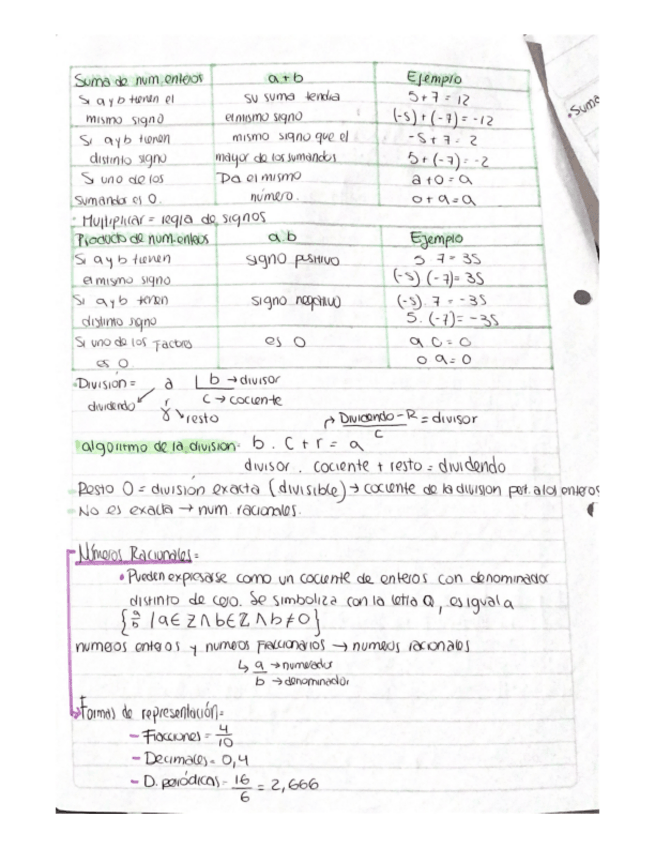 Suma de num. enteros a+b Ejemplo
Si a y b tienen el su suma tendra 5+7=12
mismo signo el mismo signo (-5)+(-7)=-12
Si a y b tienen mismo signo que el -5+7=2
distinto signo mayor de los sumandos 5+(-7)=-2
Si uno de los Da el mismo a+0=a
Sumandos es 0. número. 0+a=a
· Multiplicar = regla de signos
Producto de num. enteros a.b Ejemplo
Si a y b tienen signo positivo 5 7=35
el mismo signo (-5)(-7)=35
Si a y b tienen signo negativo (-5).7=-35
distinto signo 5.(-7)=-35
Si uno de los factores es 0 a 0=0
es 0 0 a=0
·División= a b → divisor
dividendo r c → cociente
resto Dividendo-R = divisor
c
algoritmo de la division: b.c+r=a
divisor . cociente + resto = dividendo
- Resto 0 = división exacta (divisible) → cociente de la division pert. a los enteros
- No es exacta → num. racionales.
Números Racionales=
• Pueden expresarse como un cociente de enteros con denominador
distinto de cero. Se simboliza con la letra Q, es igual a
{a/b /a∈Z∧b∈Z∧b≠0}
numeros enteros y numeros fraccionarios → numeros racionales
↳ a → numerador
b → denominador
Formas de representación=
- Fracciones= 4/10
- Decimales= 0,4
- D. periódicas= 16/6 = 2,666
•Suma